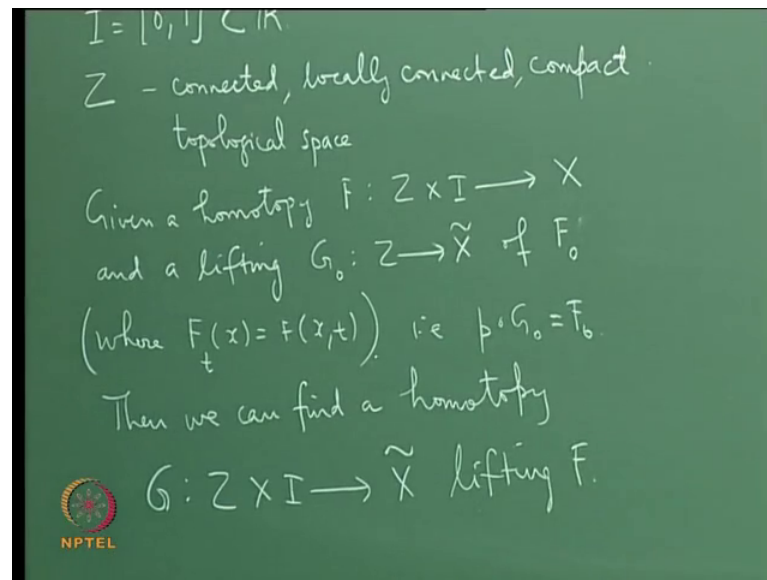 I = [0, 1] ⊂ ℝ
Z - connected, locally connected, compact
topological space
Given a homotopy F : Z × I ⟶ X
and a lifting G₀ : Z ⟶ X̃ of F₀
(where F_t(x) = F(x,t)). i.e p∘G₀ = F₀.
Then we can find a homotopy
G : Z × I ⟶ X̃ lifting F.
NPTEL